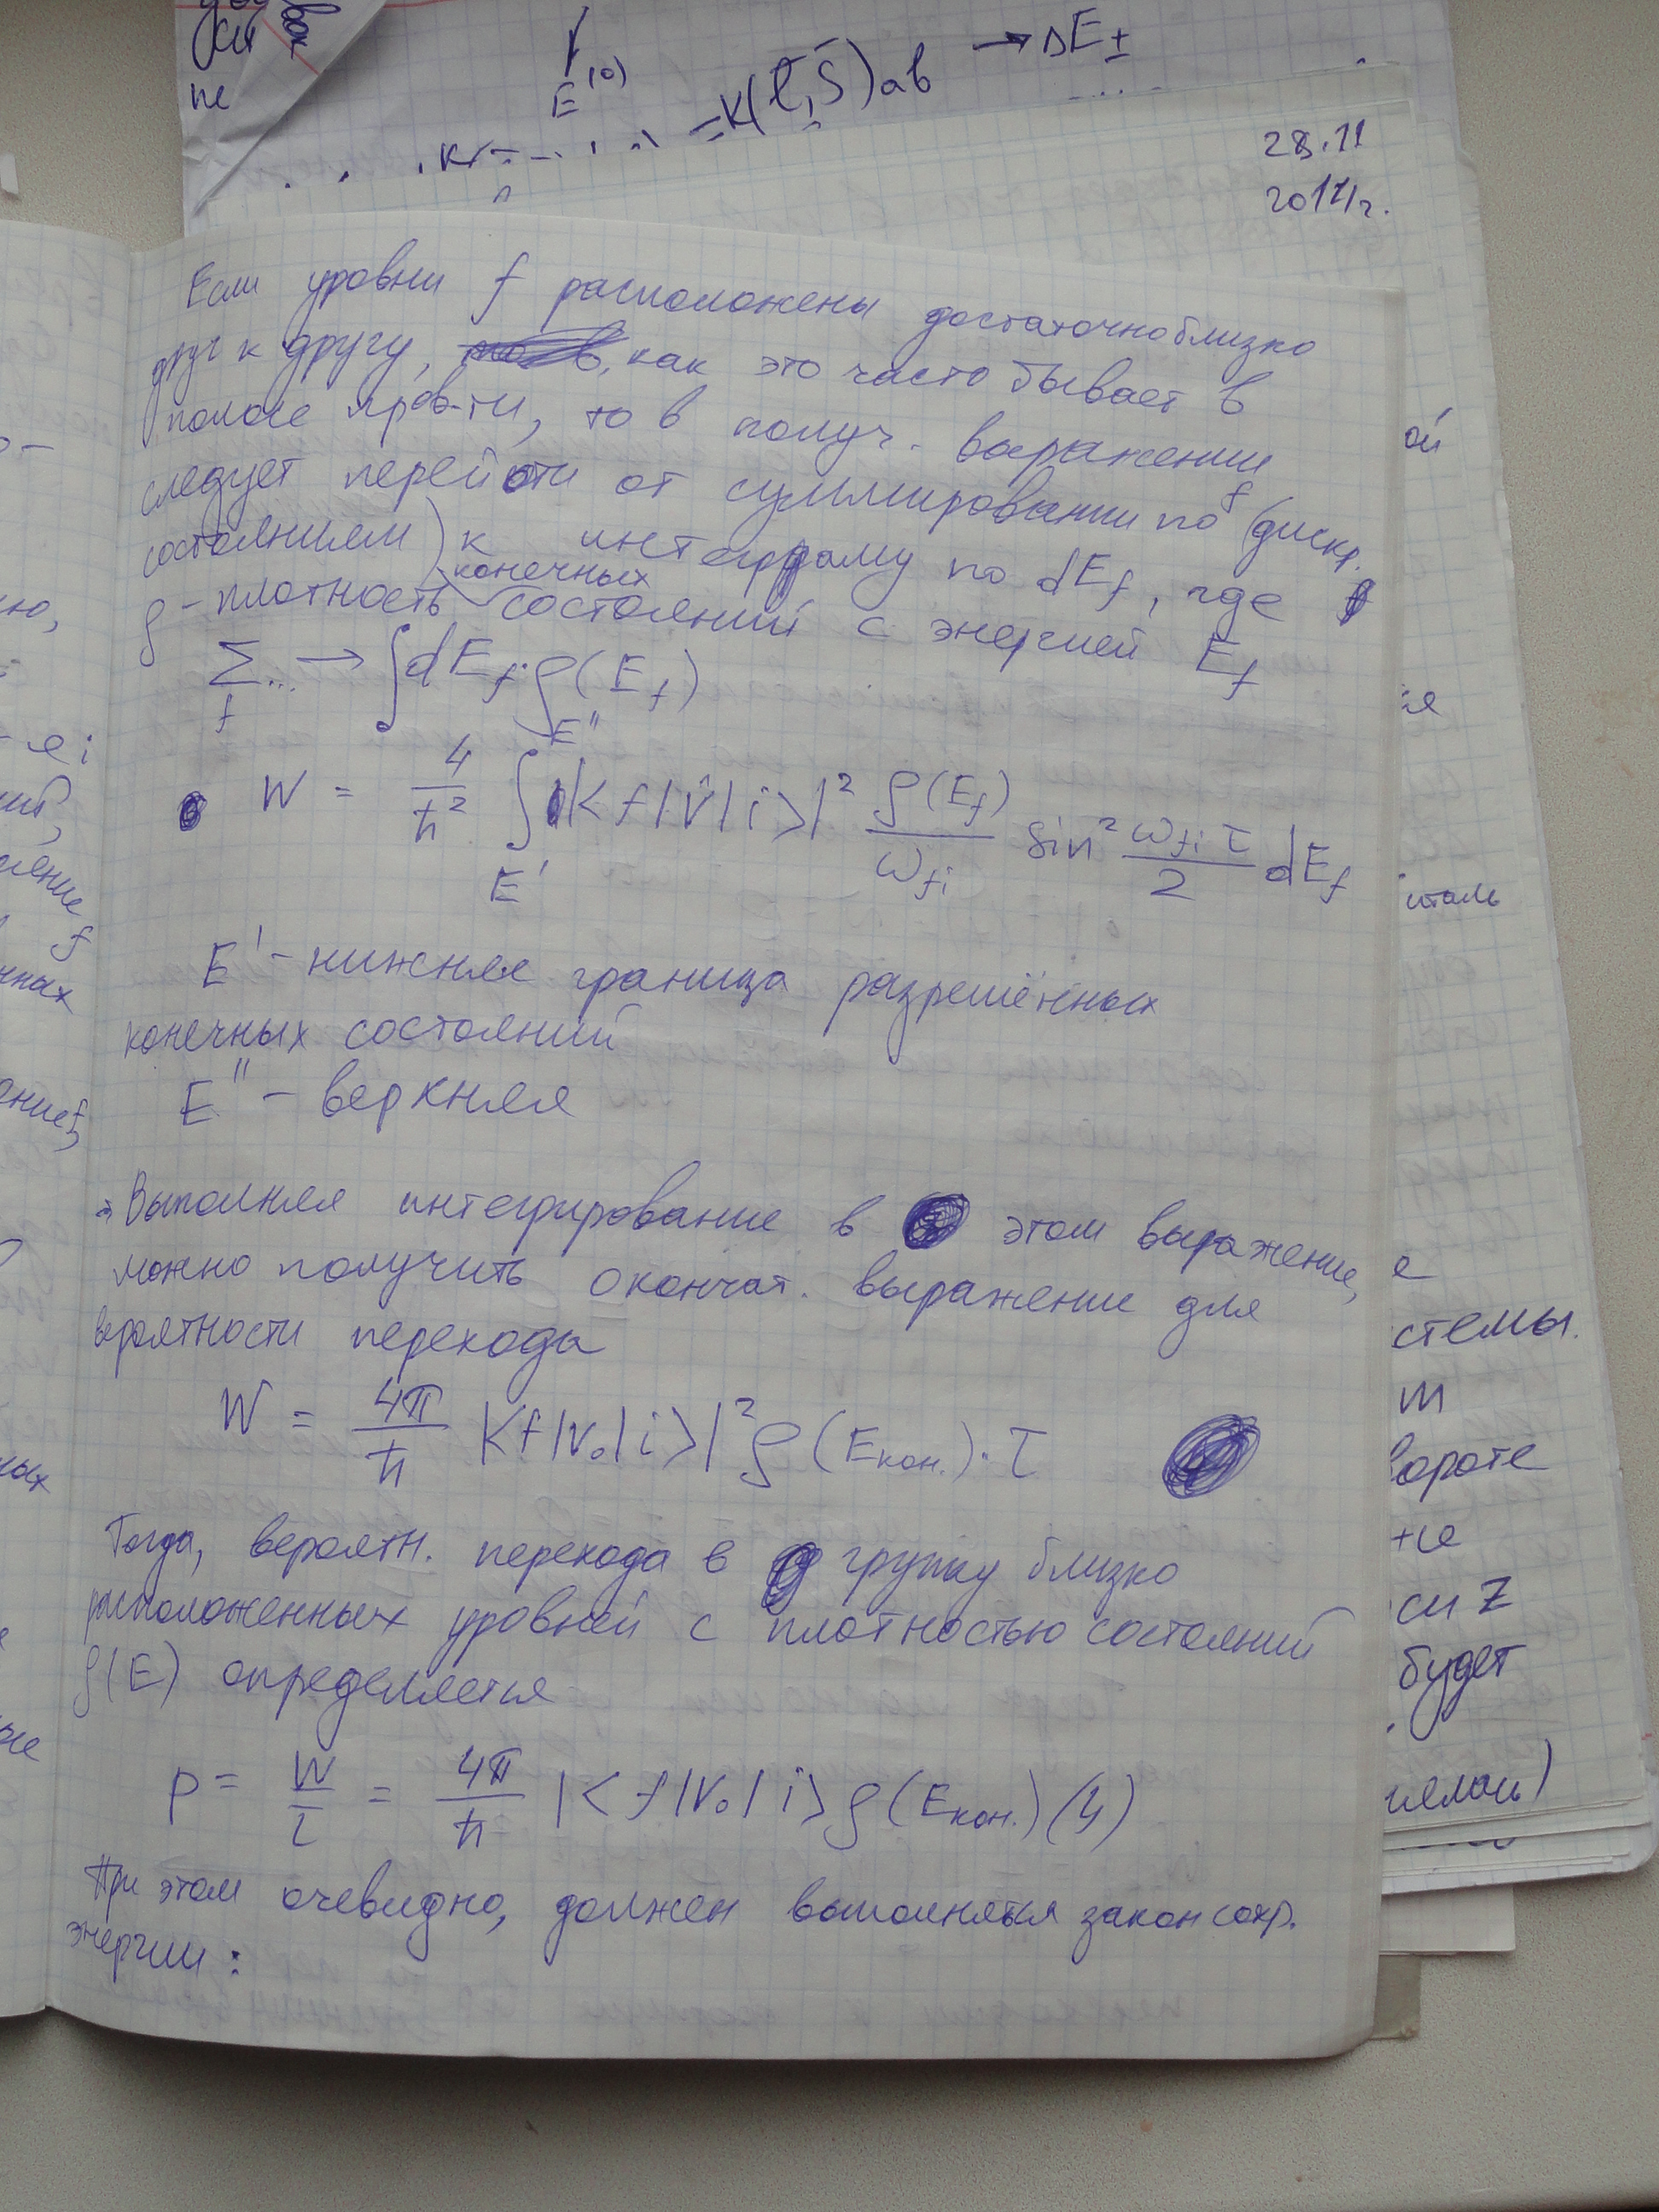 не
E⁽⁰⁾
= K(l⃗, S⃗)ab → ΔE±
28.11
2017г.
Если уровни f расположены достаточно близко
друг к другу, как это часто бывает в
полосе пров-ти, то в получ. выражении
следует перейти от суммировании по f (дискр.
состояниям) к интегралу по dE_f, где
ρ - плотность конечных состояний с энергией E_f
∑_f ... → ∫dE_f·ρ(E_f)
W = 4/ħ² ∫_{E'}^{E''} |<f|V̂|i>|² ρ(E_f)/ω_fi sin² ω_fi τ/2 dE_f
E' - нижняя граница разрешённых
конечных состояний
E'' - верхняя
Выполняя интегрирование в этом выражение,
можно получить окончат. выражение для
вероятности перехода
W = 4π/ħ |<f|V₀|i>|² ρ(E_кон.)·τ
Тогда, вероятн. перехода в группу близко
расположенных уровней с плотностью состояний
ρ(E) определяется
P = W/τ = 4π/ħ |<f|V₀|i> ρ(E_кон.) (4)
При этом очевидно, должен выполняться закон сохр.
энергии:
ой
е
стемы.
m
вороте
си Z
будет